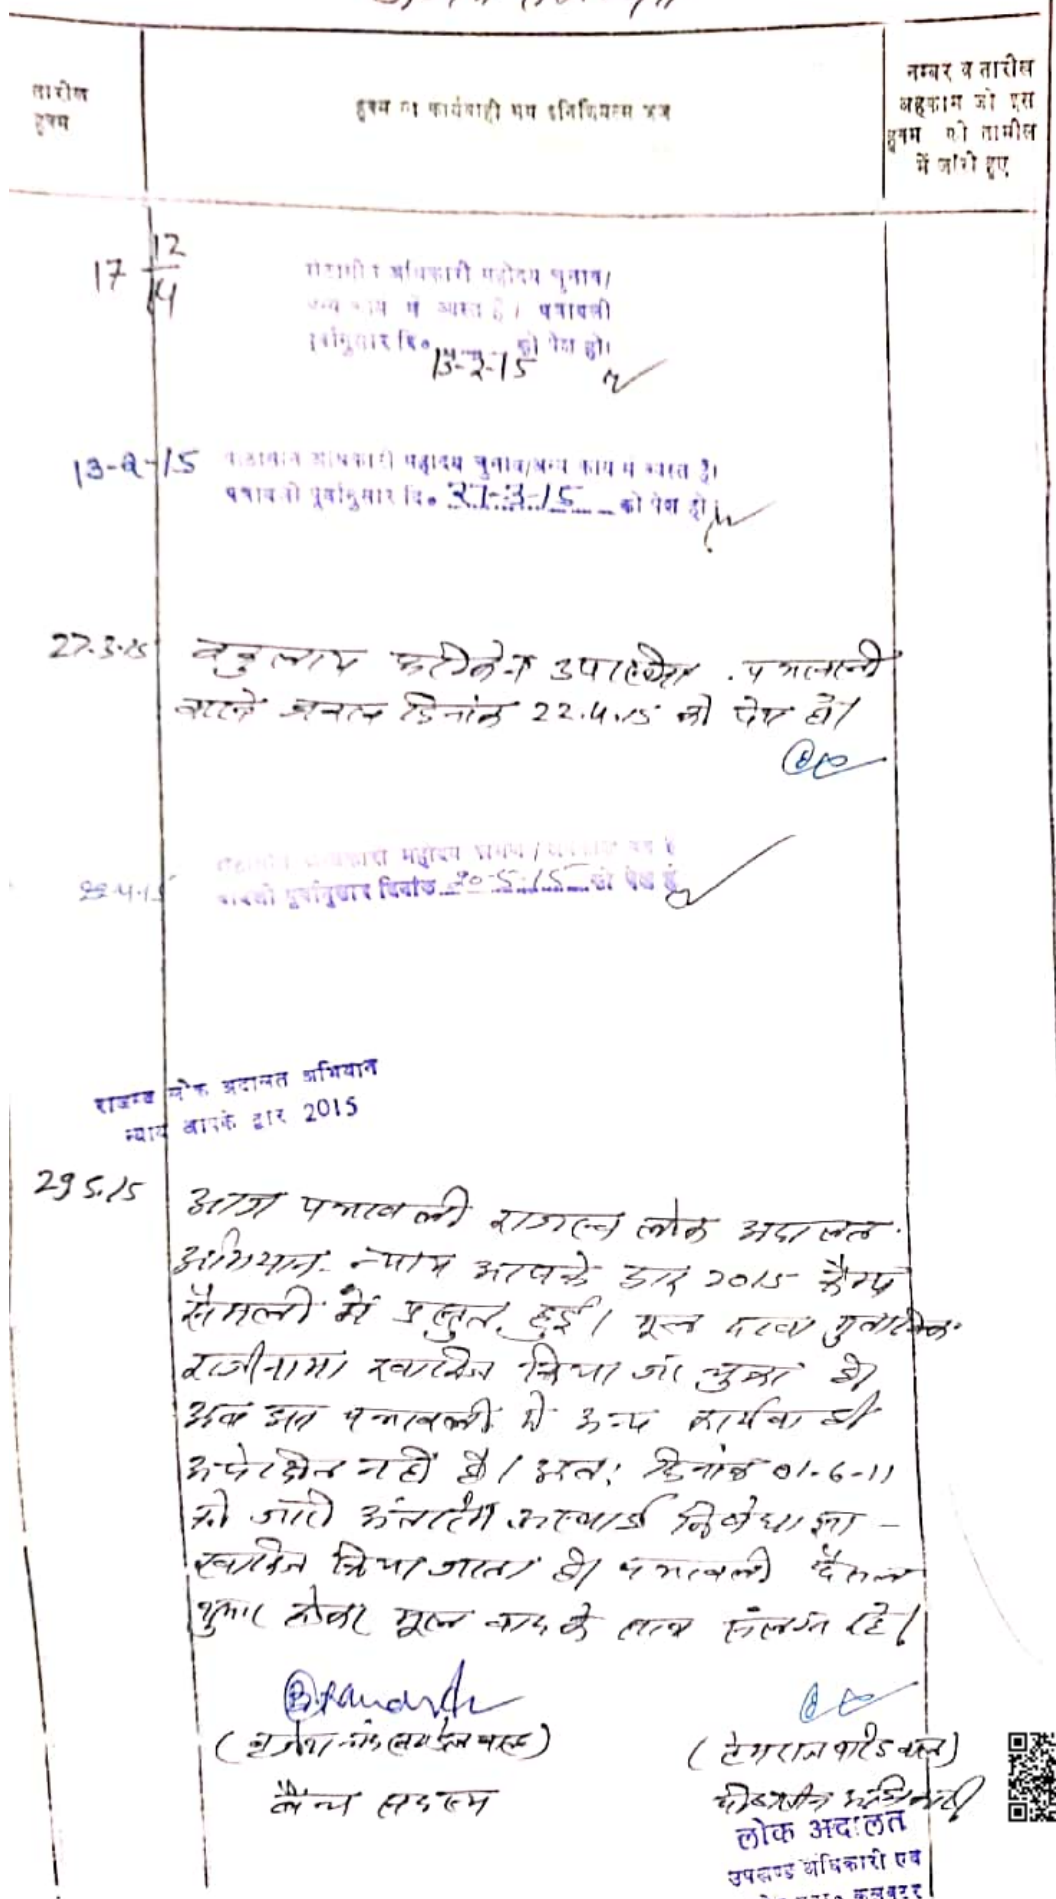 तारीख
हुक्म
हुक्म या कार्यवाही मय इनिशियल्स जज
नम्बर व तारीख
अहकाम जो इस
हुक्म की तामील
में जारी हुए
17 12/14
अधिकारी महोदय चुनाव/
अन्य कार्य में व्यस्त है। पत्रावली
पूर्वानुसार दि० 13-2-15 को पेश हो।
13-2-15
अधिकारी महोदय चुनाव/अन्य कार्य में व्यस्त है।
पत्रावली पूर्वानुसार दि० 27-3-15 को पेश हो।
27.3.15
उपस्थित. पत्रावली
वास्ते दिनांक 22.4.15 को पेश हो।
22-4-15
महोदय
पूर्वानुसार दिनांक 20-5-15 को पेश हो
राजस्व लोक अदालत अभियान
न्याय आपके द्वार 2015
29.5.15
आज पत्रावली राजस्व लोक अदालत
अभियान- न्याय आपके द्वार 2015 कैम्प
सैमली में प्रस्तुत हुई। मूल दावा मुताबिक
राजीनामा खारिज किया जा चुका है।
अब इस पत्रावली में अन्य कार्यवाही
अपेक्षित नहीं है। अतः दिनांक 01-6-11
को जारी अंतरिम अस्थाई निषेधाज्ञा -
खारिज किया जाता है। पत्रावली फैसल
शुमार होकर मूल वाद के साथ संलग्न रहे।
बैन्च सदस्य
पीठासीन अधिकारी
लोक अदालत
उपखण्ड अधिकारी एवं
कलक्टर